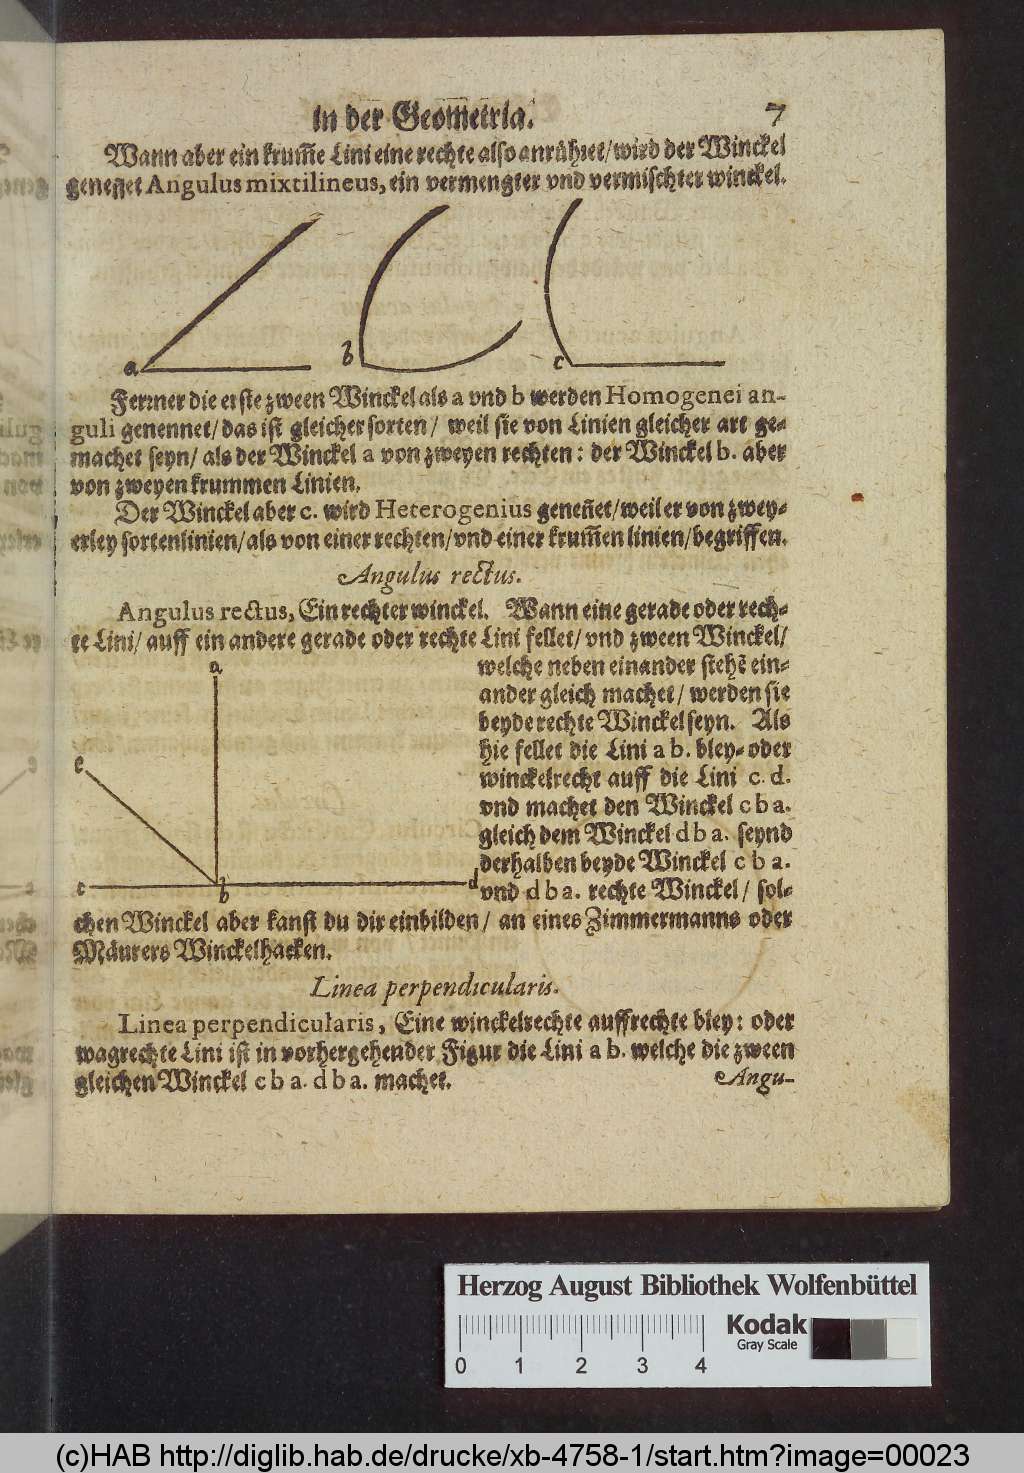 in der Geometria.
7
Wann aber ein krum̃e Lini eine rechte also anrühret/wird der Winckel
geneñet Angulus mixtilineus, ein vermengter vnd vermischter winckel.
a
b
c
Ferrner die erste zween Winckel als a vnd b werden Homogenei an-
guli genennet/ das ist gleicher sorten/ weil sie von Linien gleicher art ge-
machet seyn/ als der Winckel a von zweyen rechten: der Winckel b. aber
von zweyen krummen Linien.
Der Winckel aber c. wird Heterogenius geneñet/weil er von zwey-
erley sorten linien/als von einer rechten/vnd einer krum̃en linien/begriffen.
Angulus rectus.
Angulus rectus, Ein rechter winckel. Wann eine gerade oder rech-
te Lini/ auff ein andere gerade oder rechte Lini fellet/ vnd zween Winckel/
welche neben einander stehẽ ein-
ander gleich machet/ werden sie
beyde rechte Winckel seyn. Als
hie fellet die Lini a b. bley- oder
winckelrecht auff die Lini c. d.
vnd machet den Winckel c b a.
gleich dem Winckel d b a. seynd
derhalben beyde Winckel c b a.
vnd d b a. rechte Winckel/ sol-
a
e
c
b
d
chen Winckel aber kanst du dir einbilden/ an eines Zimmermanns oder
Mäurers Winckelhacken.
Linea perpendicularis.
Linea perpendicularis, Eine winckelrechte auffrechte bley: oder
wagrechte Lini ist in vorhergehender Figur die Lini a b. welche die zween
gleichen Winckel c b a. d b a. machet.
Angu-
Herzog August Bibliothek Wolfenbüttel
0 1 2 3 4
Kodak
Gray Scale
(c)HAB http://diglib.hab.de/drucke/xb-4758-1/start.htm?image=00023